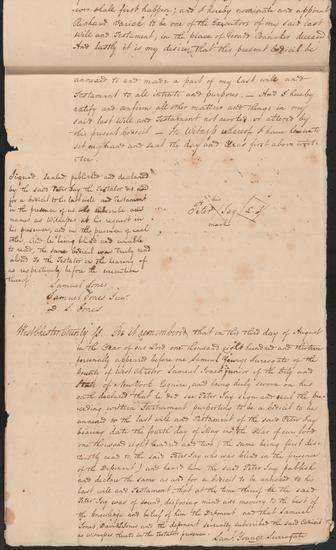 ever shall first happen; and I hereby nominate and appoint
Richard Varick to be one of the Executors of my said last
Will and Testament, in the place of Gerard Bancker deceased
And lastly it is my desire, that this present Codicil be
annexed to and made a part of my last will and
Testament to all intents and purposes. – And I hereby
ratify and confirm all other matters and things in my
said last Will and Testament not revoked or altered by
this present Codicil – In Witness whereof I have hereunto
set my hand and seal the day and year first above writ-
ten.
Signed, sealed published and declared
by the said Peter Jay the Testator as and
for a Codicil to his last will and Testament
in the presence of us who subscribe our
names as Witnesses at his request in
his presence, and in the presence of each
other. And he being blind and unable
to read, the same Codicil was truly read
aloud to the Testator in the hearing of
us respectively before the execution
thereof
his
Peter Jay L.S.
mark
Samuel Jones
Samuel Jones Junr
D. S. Jones
West Chester County ss. Be it remembered, that on this third day of August
in the Year of our Lord one thousand eight hundred and thirteen
personally appeared before me Samuel Youngs Surrogate of the
County of West Chester Samuel Jones Junior of the City and
State of New York Esquire, and being duly sworn on his
oath declared that he did see Peter Jay sign and seal the pre-
ceding written Instrument purporting to be a Codicil to be
annexed to the last will and Testament of the said Peter Jay
bearing date the fourth day of May in the Year of our Lord
one thousand eight hundred and two; the same being first dis-
tinctly read to the said Peter Jay who was blind in the presence
of the deponent, and heard him the said Peter Jay publish
and declare the same as and for a Codicil to be annexed to his
last will and Testament, that at the time thereof he the said
Peter Jay was of sound, disposing mind and memory to the best of
the knowledge and belief of him the Deponent, and that Samuel
Jones, David S. Jones and the deponent severally subscribed the said Codicil
as witnesses thereto in the Testators presence. Saml. Youngs Surrogate